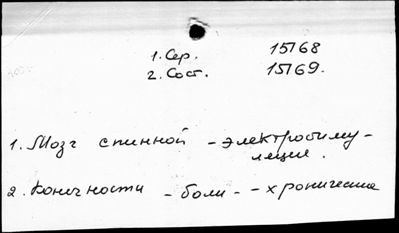 1. Сер. 15168
2. Сост. 15169.
1. Мозг спинной - электростиму-
ляция.
2. Конечности - боли - - хронические